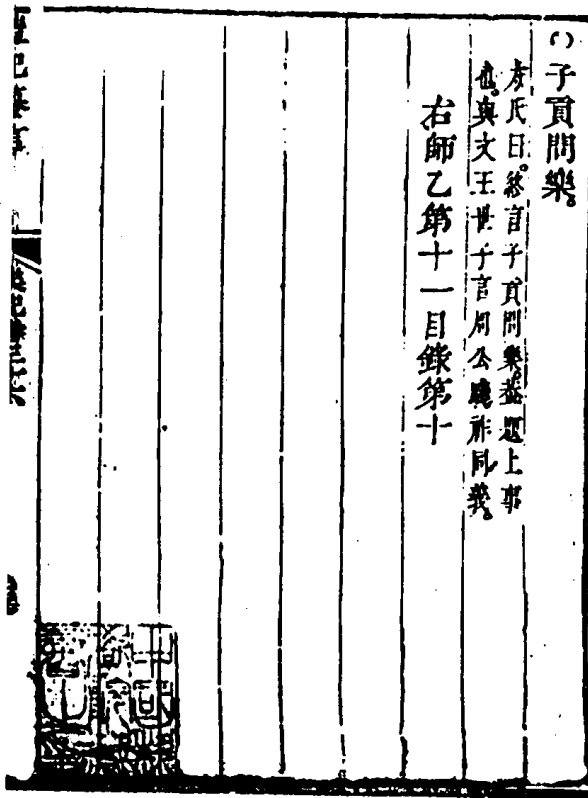 子貢問樂
方氏曰終言子貢問樂蓋題上事
也與文王世子言周公踐祚同義
右師乙第十一目錄第十